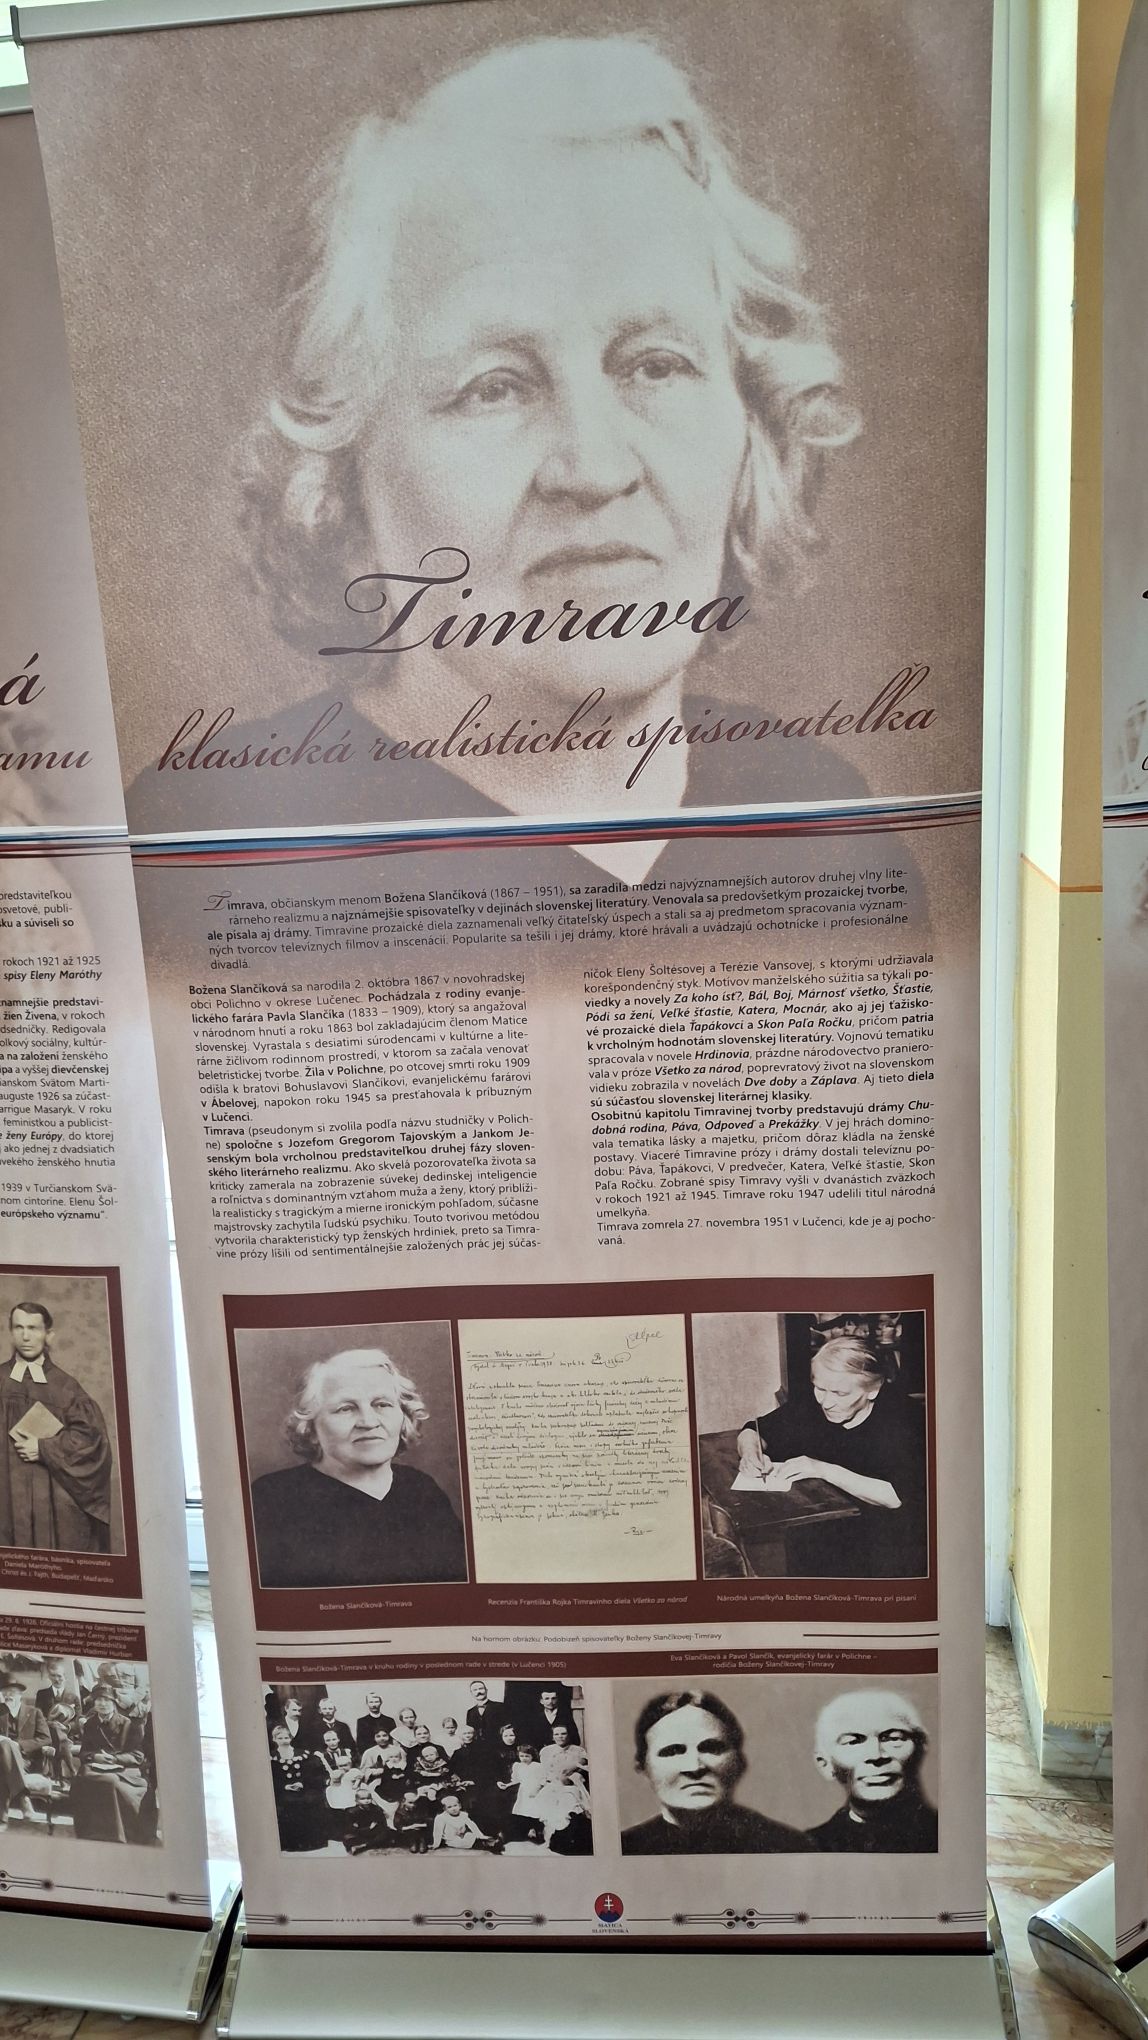 Timrava
klasická realistická spisovateľka
Timrava, občianskym menom Božena Slančíková (1867 – 1951), sa zaradila medzi najvýznamnejších autorov druhej vlny lite-
rárneho realizmu a najznámejšie spisovateľky v dejinách slovenskej literatúry. Venovala sa predovšetkým prozaickej tvorbe,
ale písala aj drámy. Timravine prozaické diela zaznamenali veľký čitateľský úspech a stali sa aj predmetom spracovania význam-
ných tvorcov televíznych filmov a inscenácií. Popularite sa tešili i jej drámy, ktoré hrávali a uvádzajú ochotnícke i profesionálne
divadlá.
Božena Slančíková sa narodila 2. októbra 1867 v novohradskej
obci Polichno v okrese Lučenec. Pochádzala z rodiny evanje-
lického farára Pavla Slančíka (1833 – 1909), ktorý sa angažoval
v národnom hnutí a roku 1863 bol zakladajúcim členom Matice
slovenskej. Vyrastala s desiatimi súrodencami v kultúrne a lite-
rárne žičlivom rodinnom prostredí, v ktorom sa začala venovať
beletristickej tvorbe. Žila v Polichne, po otcovej smrti roku 1909
odišla k bratovi Bohuslavovi Slančíkovi, evanjelickému farárovi
v Ábelovej, napokon roku 1945 sa presťahovala k príbuzným
v Lučenci.
Timrava (pseudonym si zvolila podľa názvu studničky v Polich-
ne) spoločne s Jozefom Gregorom Tajovským a Jankom Je-
senským bola vrcholnou predstaviteľkou druhej fázy sloven-
ského literárneho realizmu. Ako skvelá pozorovateľka života sa
kriticky zamerala na zobrazenie súvekej dedinskej inteligencie
a roľníctva s dominantným vzťahom muža a ženy, ktorý priblíži-
la realisticky s tragickým a mierne ironickým pohľadom, súčasne
majstrovsky zachytila ľudskú psychiku. Touto tvorivou metódou
vytvorila charakteristický typ ženských hrdiniek, preto sa Timra-
vine prózy líšili od sentimentálnejšie založených prác jej súčas-
níčok Eleny Šoltésovej a Terézie Vansovej, s ktorými udržiavala
korešpondenčný styk. Motívov manželského súžitia sa týkali po-
viedky a novely Za koho ísť?, Bál, Boj, Márnosť všetko, Šťastie,
Pódi sa žení, Veľké šťastie, Katera, Mocnár, ako aj jej ťažisko-
vé prozaické diela Ťapákovci a Skon Paľa Ročku, pričom patria
k vrcholným hodnotám slovenskej literatúry. Vojnovú tematiku
spracovala v novele Hrdinovia, prázdne národovectvo praniero-
vala v próze Všetko za národ, poprevratový život na slovenskom
vidieku zobrazila v novelách Dve doby a Záplava. Aj tieto diela
sú súčasťou slovenskej literárnej klasiky.
Osobitnú kapitolu Timravinej tvorby predstavujú drámy Chu-
dobná rodina, Páva, Odpoveď a Prekážky. V jej hrách domino-
vala tematika lásky a majetku, pričom dôraz kládla na ženské
postavy. Viaceré Timravine prózy i drámy dostali televíznu po-
dobu: Páva, Ťapákovci, V predvečer, Katera, Veľké šťastie, Skon
Paľa Ročku. Zobrané spisy Timravy vyšli v dvanástich zväzkoch
v rokoch 1921 až 1945. Timrave roku 1947 udelili titul národná
umelkyňa.
Timrava zomrela 27. novembra 1951 v Lučenci, kde je aj pocho-
vaná.
Božena Slančíková-Timrava
Recenzia Františka Rojka Timravinho diela Všetko za národ
Národná umelkyňa Božena Slančíková-Timrava pri písaní
Na hornom obrázku: Podobizeň spisovateľky Boženy Slančíkovej-Timravy
Božena Slančíková-Timrava v kruhu rodiny v poslednom rade v strede (v Lučenci 1905)
Eva Slančíková a Pavol Slančík, evanjelický farár v Polichne –
rodičia Boženy Slančíkovej-Timravy
MATICA
SLOVENSKÁ
á
amu
predstaviteľkou
osvetové, publi-
sku a súviseli so
rokoch 1921 až 1925
spisy Eleny Maróthy
žien Živena, v rokoch
dsedníčky. Redigovala
olkový sociálny, kultúr-
a na založení ženského
ipa a vyššej dievčenskej
ianskom Svätom Marti-
auguste 1926 sa zúčast-
arrigue Masaryk. V roku
feministkou a publicist-
e ženy Európy, do ktorej
j ako jednej z dvadsiatich
uvekého ženského hnutia
1939 v Turčianskom Svä-
nom cintoríne. Elenu Šol-
európskeho významu“.